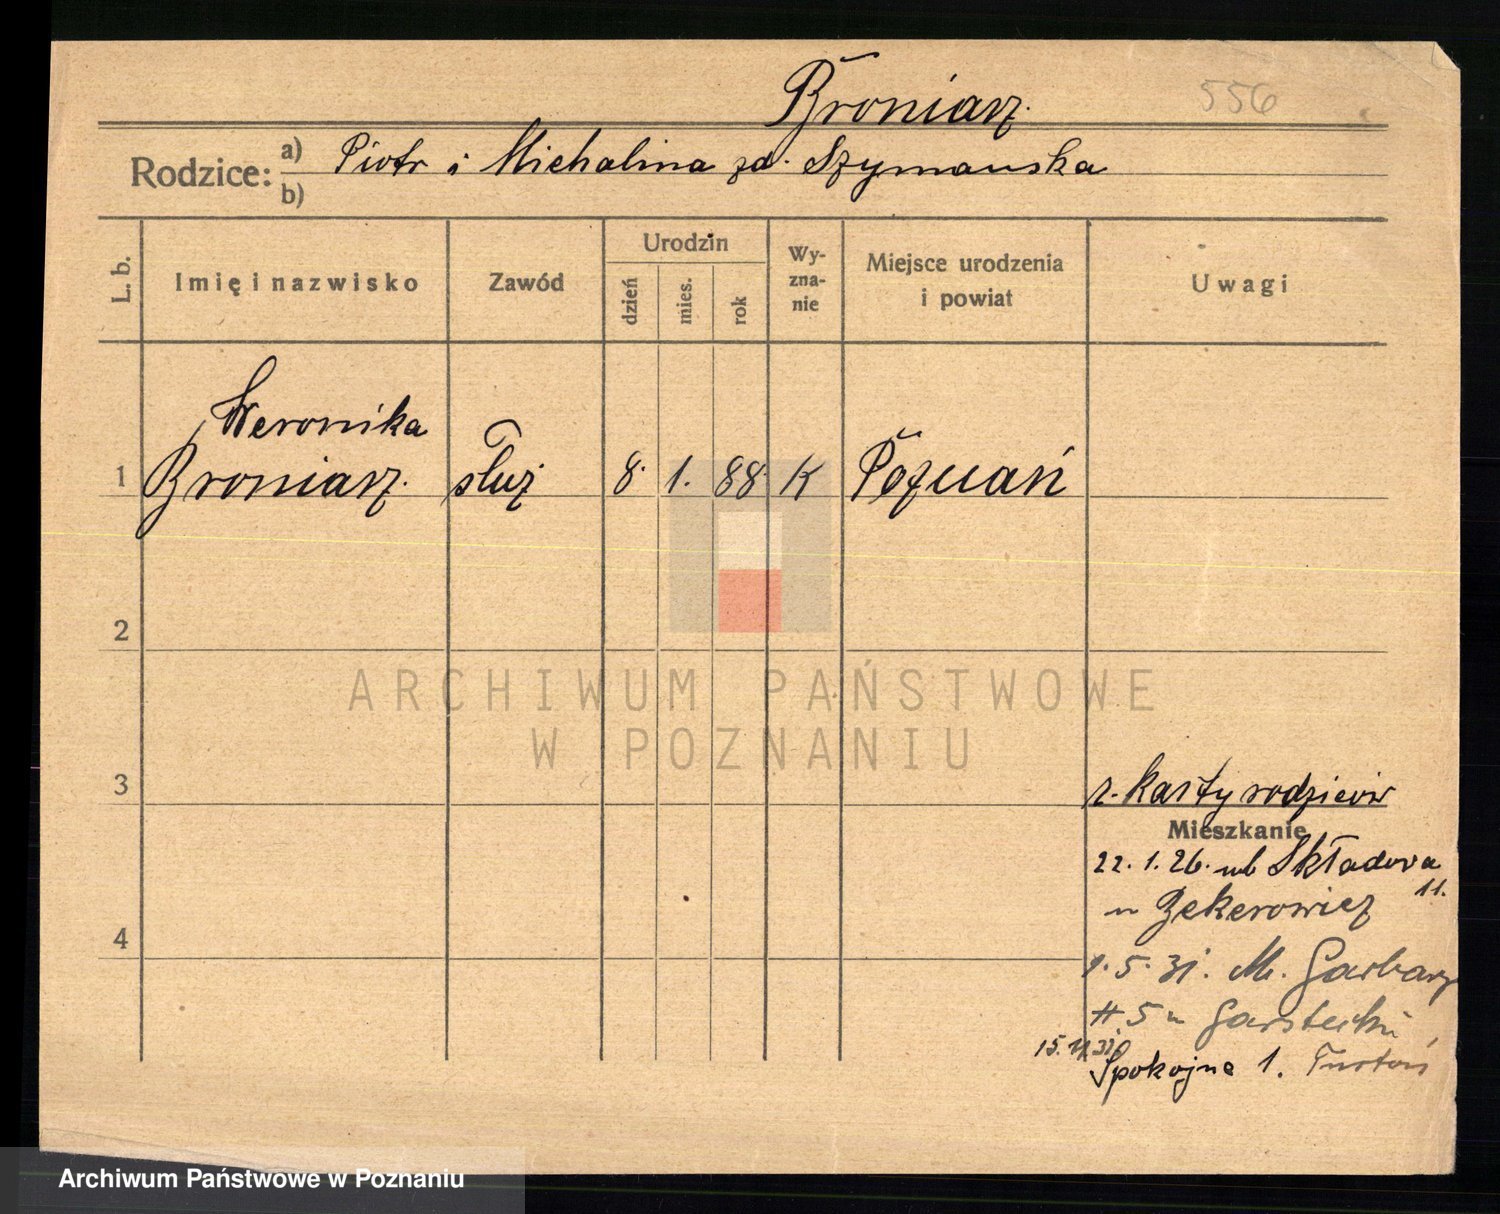 Broniarz.
556
Rodzice: a) Piotr i Michalina zd. Szymanska
b)
L. b. Imię i nazwisko Zawód Urodzin dzień mies. rok Wyznanie Miejsce urodzenia i powiat Uwagi
Weronika
1 Broniarz. służ 8. 1. 88. K Poznań
2
ARCHIWUM PAŃSTWOWE
W POZNANIU
3
z. karty rodziców
Mieszkanie
22. 1. 26. Składowa
11.
4
1. 5. 31. M. Garbary
5
15. 11. 31
Spokojna 1.
Archiwum Państwowe w Poznaniu